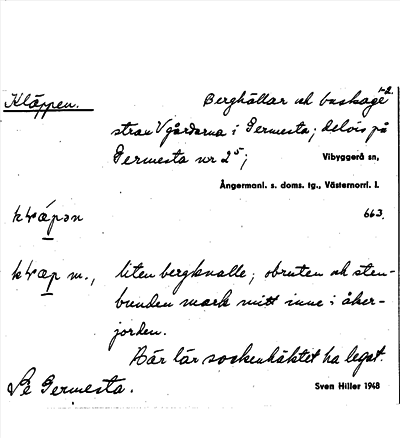 1-2.
Kläppen. Berghällar och buskage
strax V gårdarna i Germesta; delvis på
Germesta nr 2⁵; Vibyggerå sn,
Ångermanl. s. doms. tg., Västernorrl. l.
663.
m., liten bergknalle; obruten och sten-
bunden mark mitt inne i åker-
jorden.
Här lär sockenhäktet ha legat.
Se Germesta. Sven Hiller 1948